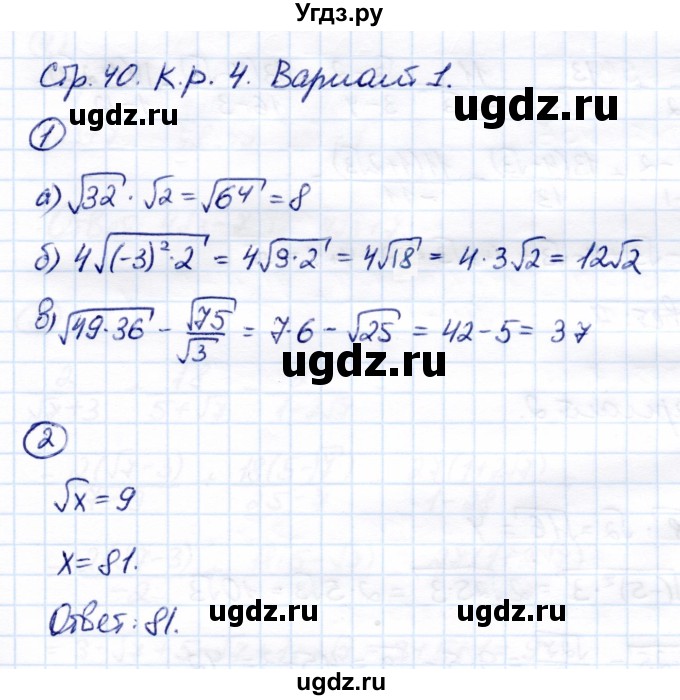 Угдз.ру
Стр. 40. К.р. 4. Вариант 1.
ugdz.ru ugdz.ru
1
а) √32 · √2 = √64 = 8
б) 4√(-3)² · 2 = 4√9 · 2 = 4√18 = 4 · 3√2 = 12√2
в) √49 · 36 - √75/√3 = 7 · 6 - √25 = 42 - 5 = 37
ugdz.ru
2
√x = 9
x = 81.
Ответ: 81.
ugdz.ru ugdz.ru